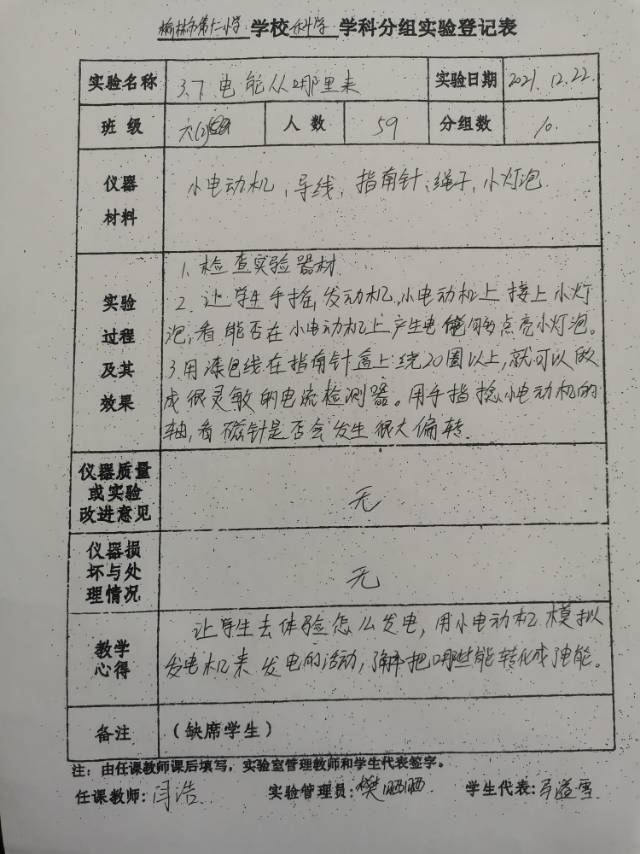 榆林市第十小学 学校 科学 学科分组实验登记表
实验名称 3.7 电能从哪里来 实验日期 2021.12.22.
班级 六(2) 人数 59 分组数 10.
仪器材料 小电动机、导线、指南针、绳子、小灯泡
实验过程及其效果
1. 检查实验器材
2. 让学生手摇发动机,小电动机上接上小灯
泡,看能否在小电动机上产生电能够点亮小灯泡。
3. 用漆包线在指南针盒上绕20圈以上,就可以做
成很灵敏的电流检测器。用手指捻小电动机的
轴,看磁针是否会发生很大偏转.
仪器质量或实验改进意见 无
仪器损坏与处理情况 无
教学心得
让学生去体验怎么发电,用小电动机模拟
发电机来发电的活动,了解把哪些能转化成电能。
备注 (缺席学生)
注:由任课教师课后填写,实验室管理教师和学生代表签字。
任课教师: 闫浩 实验管理员: 樊晒晒 学生代表: